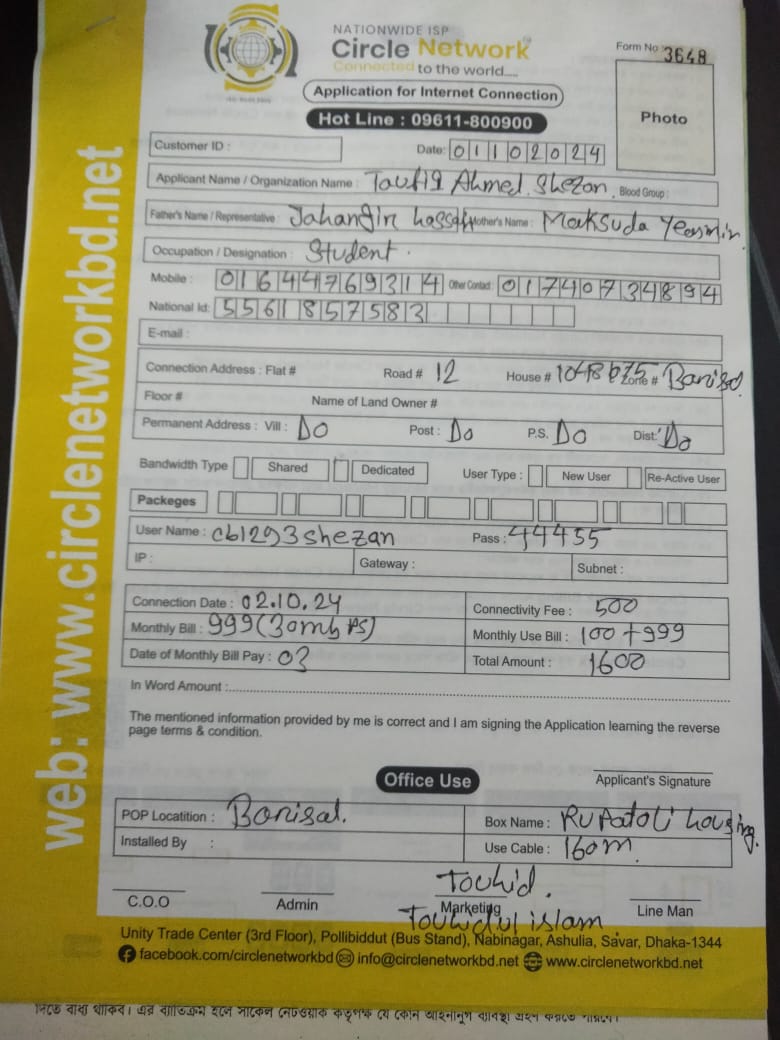 NATIONWIDE ISP
Circle Network
Connected to the world....
Form No 3648
Application for Internet Connection
Hot Line : 09611-800900
Photo
Customer ID :
Date: 01102024
Applicant Name / Organization Name : Taufiq Ahmed Shezan Blood Group :
Father's Name / Representative : Jahangir Mother's Name : Maksuda Yeasmin
Occupation / Designation : Student.
Mobile : 01644769314 Other Contact : 01740734894
National Id: 5561857583
E-mail :
Connection Address : Flat # Road # 12 House # Zone #
Floor # Name of Land Owner #
Permanent Address : Vill : Do Post : Do P.S. Do Dist: Do
Bandwidth Type Shared Dedicated User Type : New User Re-Active User
Packeges
User Name : cb1293shezan Pass : 44455
IP : Gateway : Subnet :
Connection Date : 02.10.24 Connectivity Fee : 500
Monthly Bill : 999(30mbps) Monthly Use Bill : 100+999
Date of Monthly Bill Pay : 03 Total Amount : 1600
In Word Amount :
The mentioned information provided by me is correct and I am signing the Application learning the reverse
page terms & condition.
Applicant's Signature
Office Use
POP Locatition : Barisal. Box Name : Rupatoli housing.
Installed By : Use Cable : 160m
Touhid.
C.O.O Admin Marketing Line Man
Touhidul islam
Unity Trade Center (3rd Floor), Pollibiddut (Bus Stand), Nabinagar, Ashulia, Savar, Dhaka-1344
facebook.com/circlenetworkbd info@circlenetworkbd.net www.circlenetworkbd.net
web: www.circlenetworkbd.net
দিতে বাধ্য থাকিব। এর ব্যতিক্রম হলে সার্কেল নেটওয়ার্ক কর্তৃপক্ষ যে কোন আইনানুগ ব্যবস্থা গ্রহণ করতে পারবে।